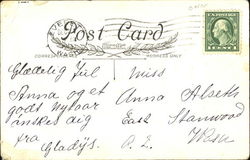 EVERETT
Post Card
CORRESPONDENCE
ADDRESS ONLY
Glædelig Jul
Anna og et
godt nytaar
ønskes dig
fra
Gladys.
Miss
Anna Alseth
East Stanwood
Wash